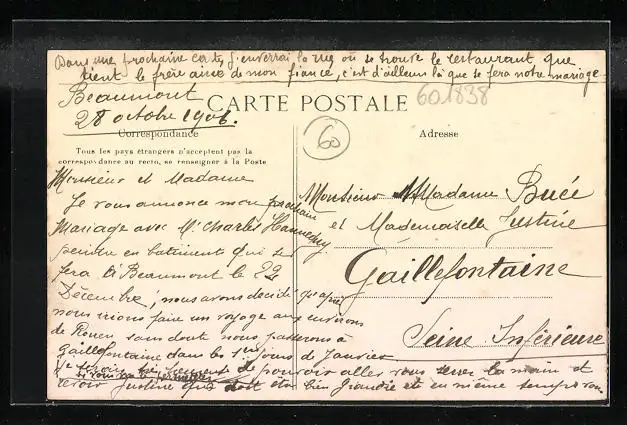 Dans une prochaine carte j'enverrai la rue où se trouve le restaurant que
tient le frère ainé de mon fiancé, c'est d'ailleurs là que se fera notre mariage
Beaumont
28 octobre 1906.
CARTE POSTALE
601838
60
Correspondance
Adresse
Tous les pays étrangers n'acceptent pas la
correspondance au recto, se renseigner à la Poste
Monsieur et Madame
Je vous annonce mon prochain
Mariage avec Mr Charles
peintre en batiments qui se
fera à Beaumont le 22
Décembre, nous avons décidé qu'après
nous irions faire un voyage aux environs
de Rouen sans doute nous passerons à
Gaillefontaine dans les 1ers jours de Janvier
de pouvoir aller vous serrer la main et
revoir Justine qui doit être bien grandie et en même temps
Monsieur Madame Buée
et Mademoiselle Justine
Gaillefontaine
Seine Inférieure